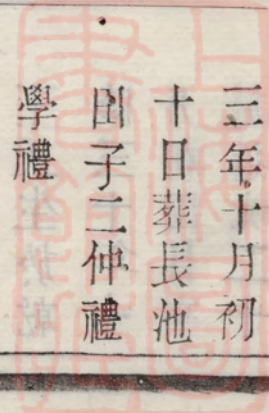 三年十月初
十日葬長池
田子二仲禮
學禮